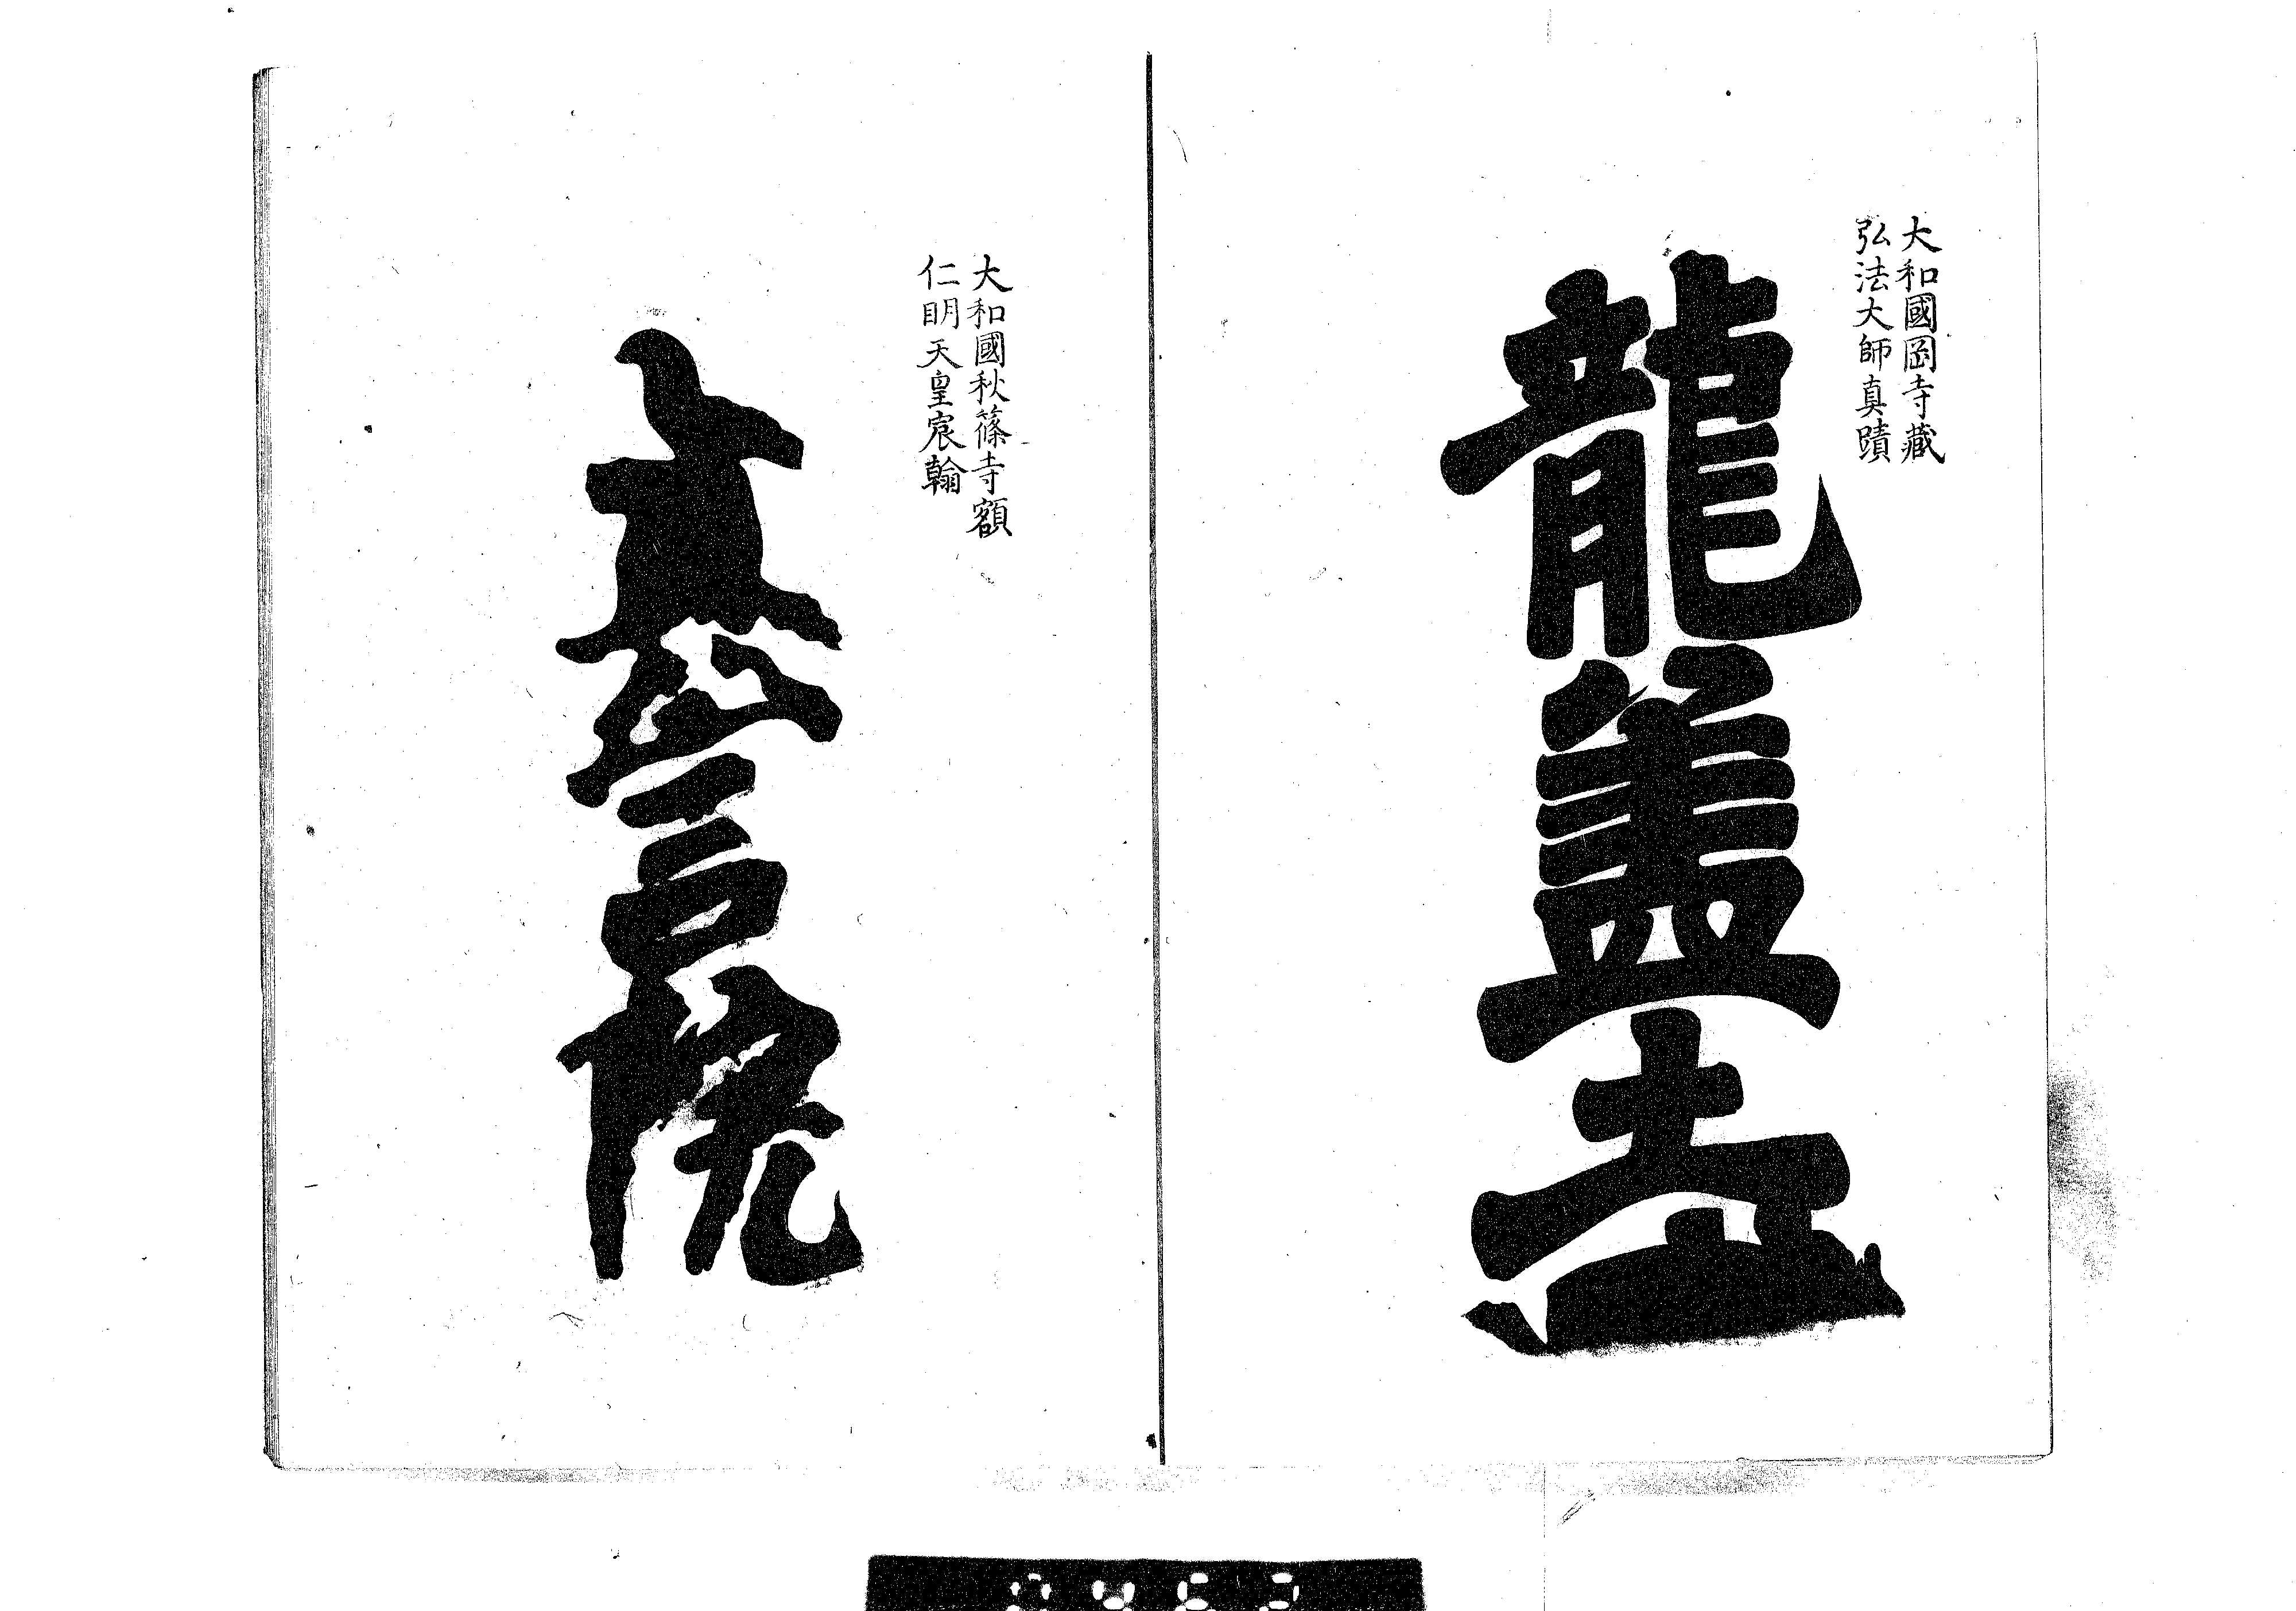 大和國岡寺藏
弘法大師真蹟
龍蓋寺
大和國秋篠寺額
仁明天皇宸翰
真言院